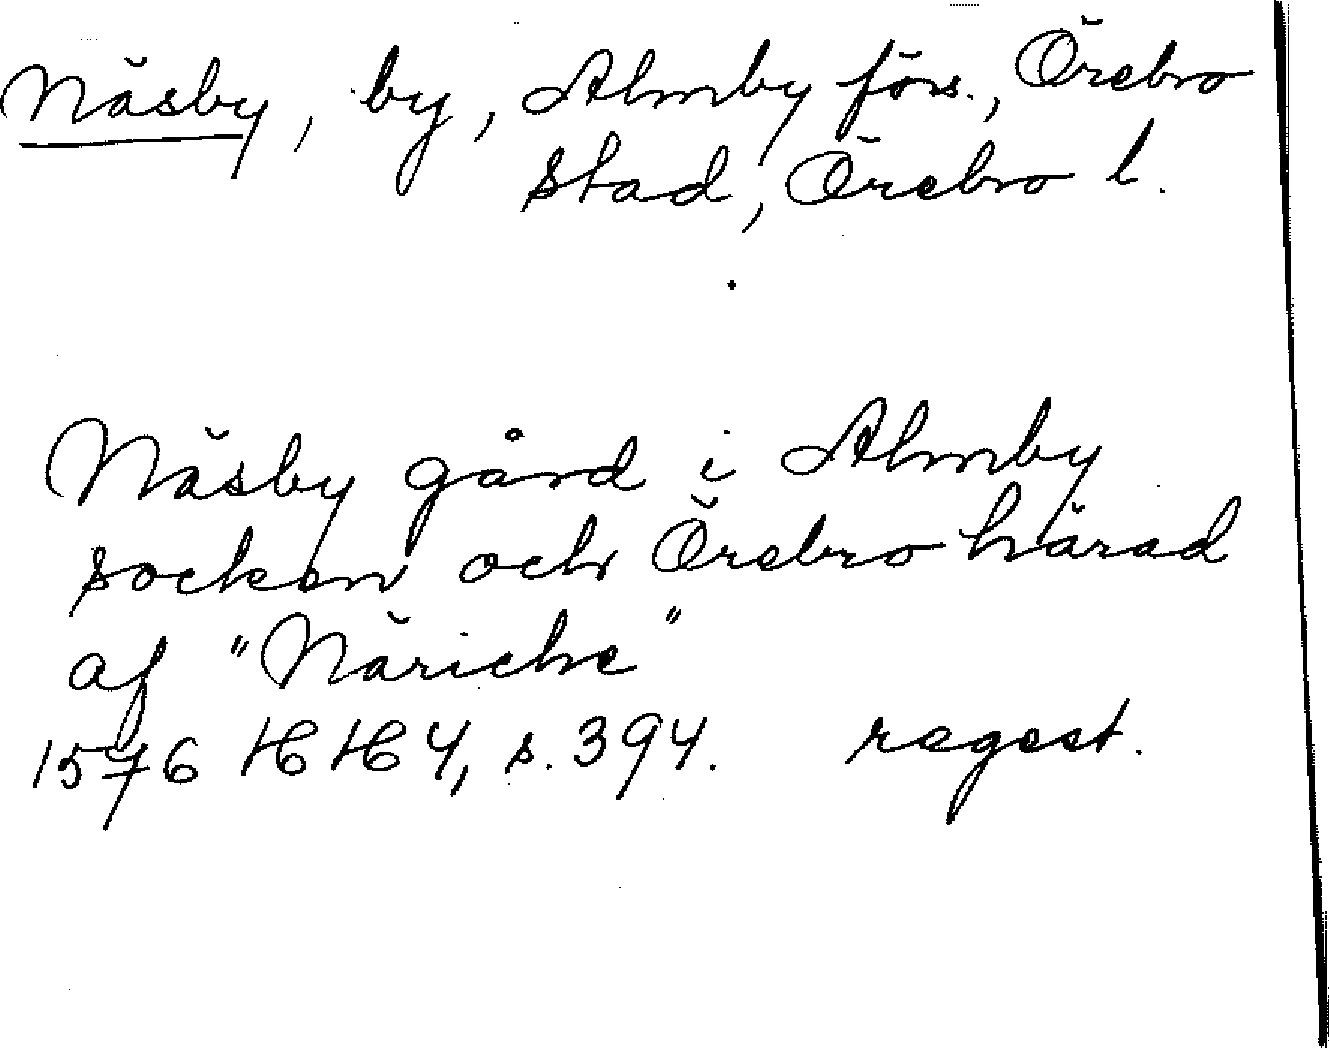 Näsby, by, Almby förs., Örebro
stad, Örebro l.
Näsby gård i Almby
socken och Örebro härad
af "Näricke"
1576 HH 4, s. 394. regest.